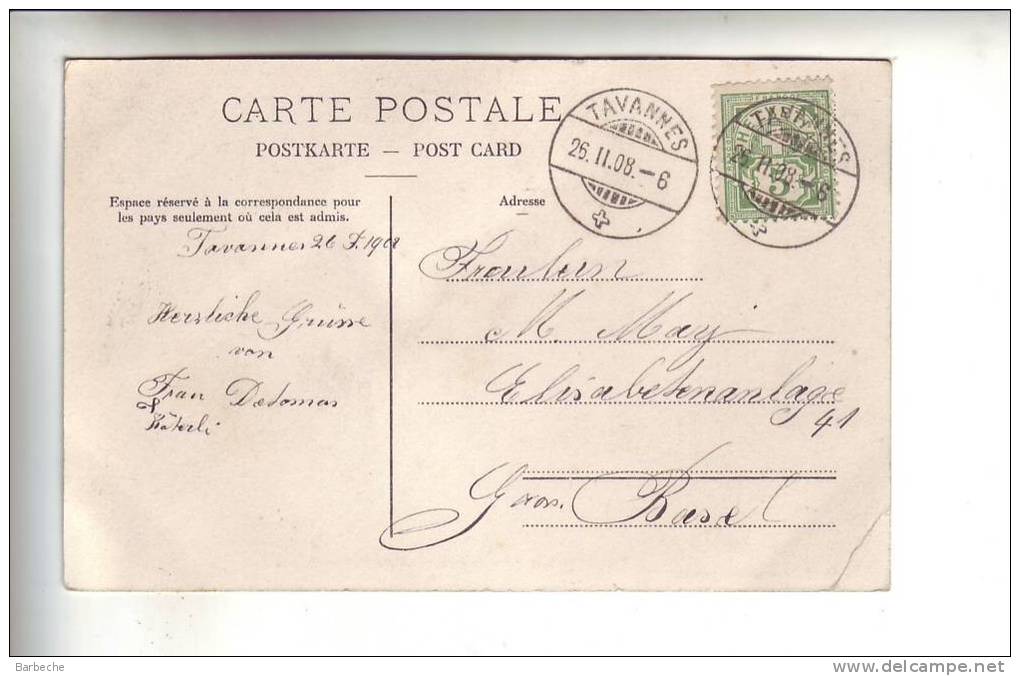 CARTE POSTALE
POSTKARTE — POST CARD
Espace réservé à la correspondance pour
les pays seulement où cela est admis.
Adresse
TAVANNES
26.II.08.–6
TAVANNES
26.II.08.–6
5
Tavannes 26
Herzliche Grüsse
von
Frau Detomas
Fräulein
M. May
Elisabetenanlage
41
Basel
Barbeche
www.delcampe.net